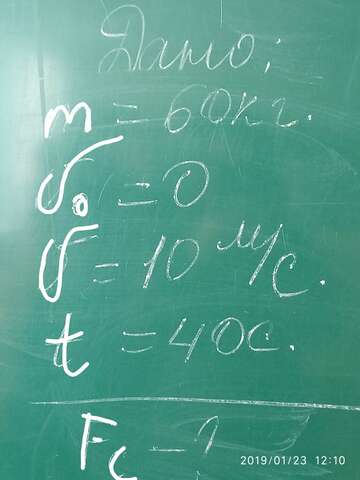 Дано:
m = 60кг.
υ₀ = 0
υ = 10 м/с.
t = 40с.
Fс - ?
2019/01/23 12:10